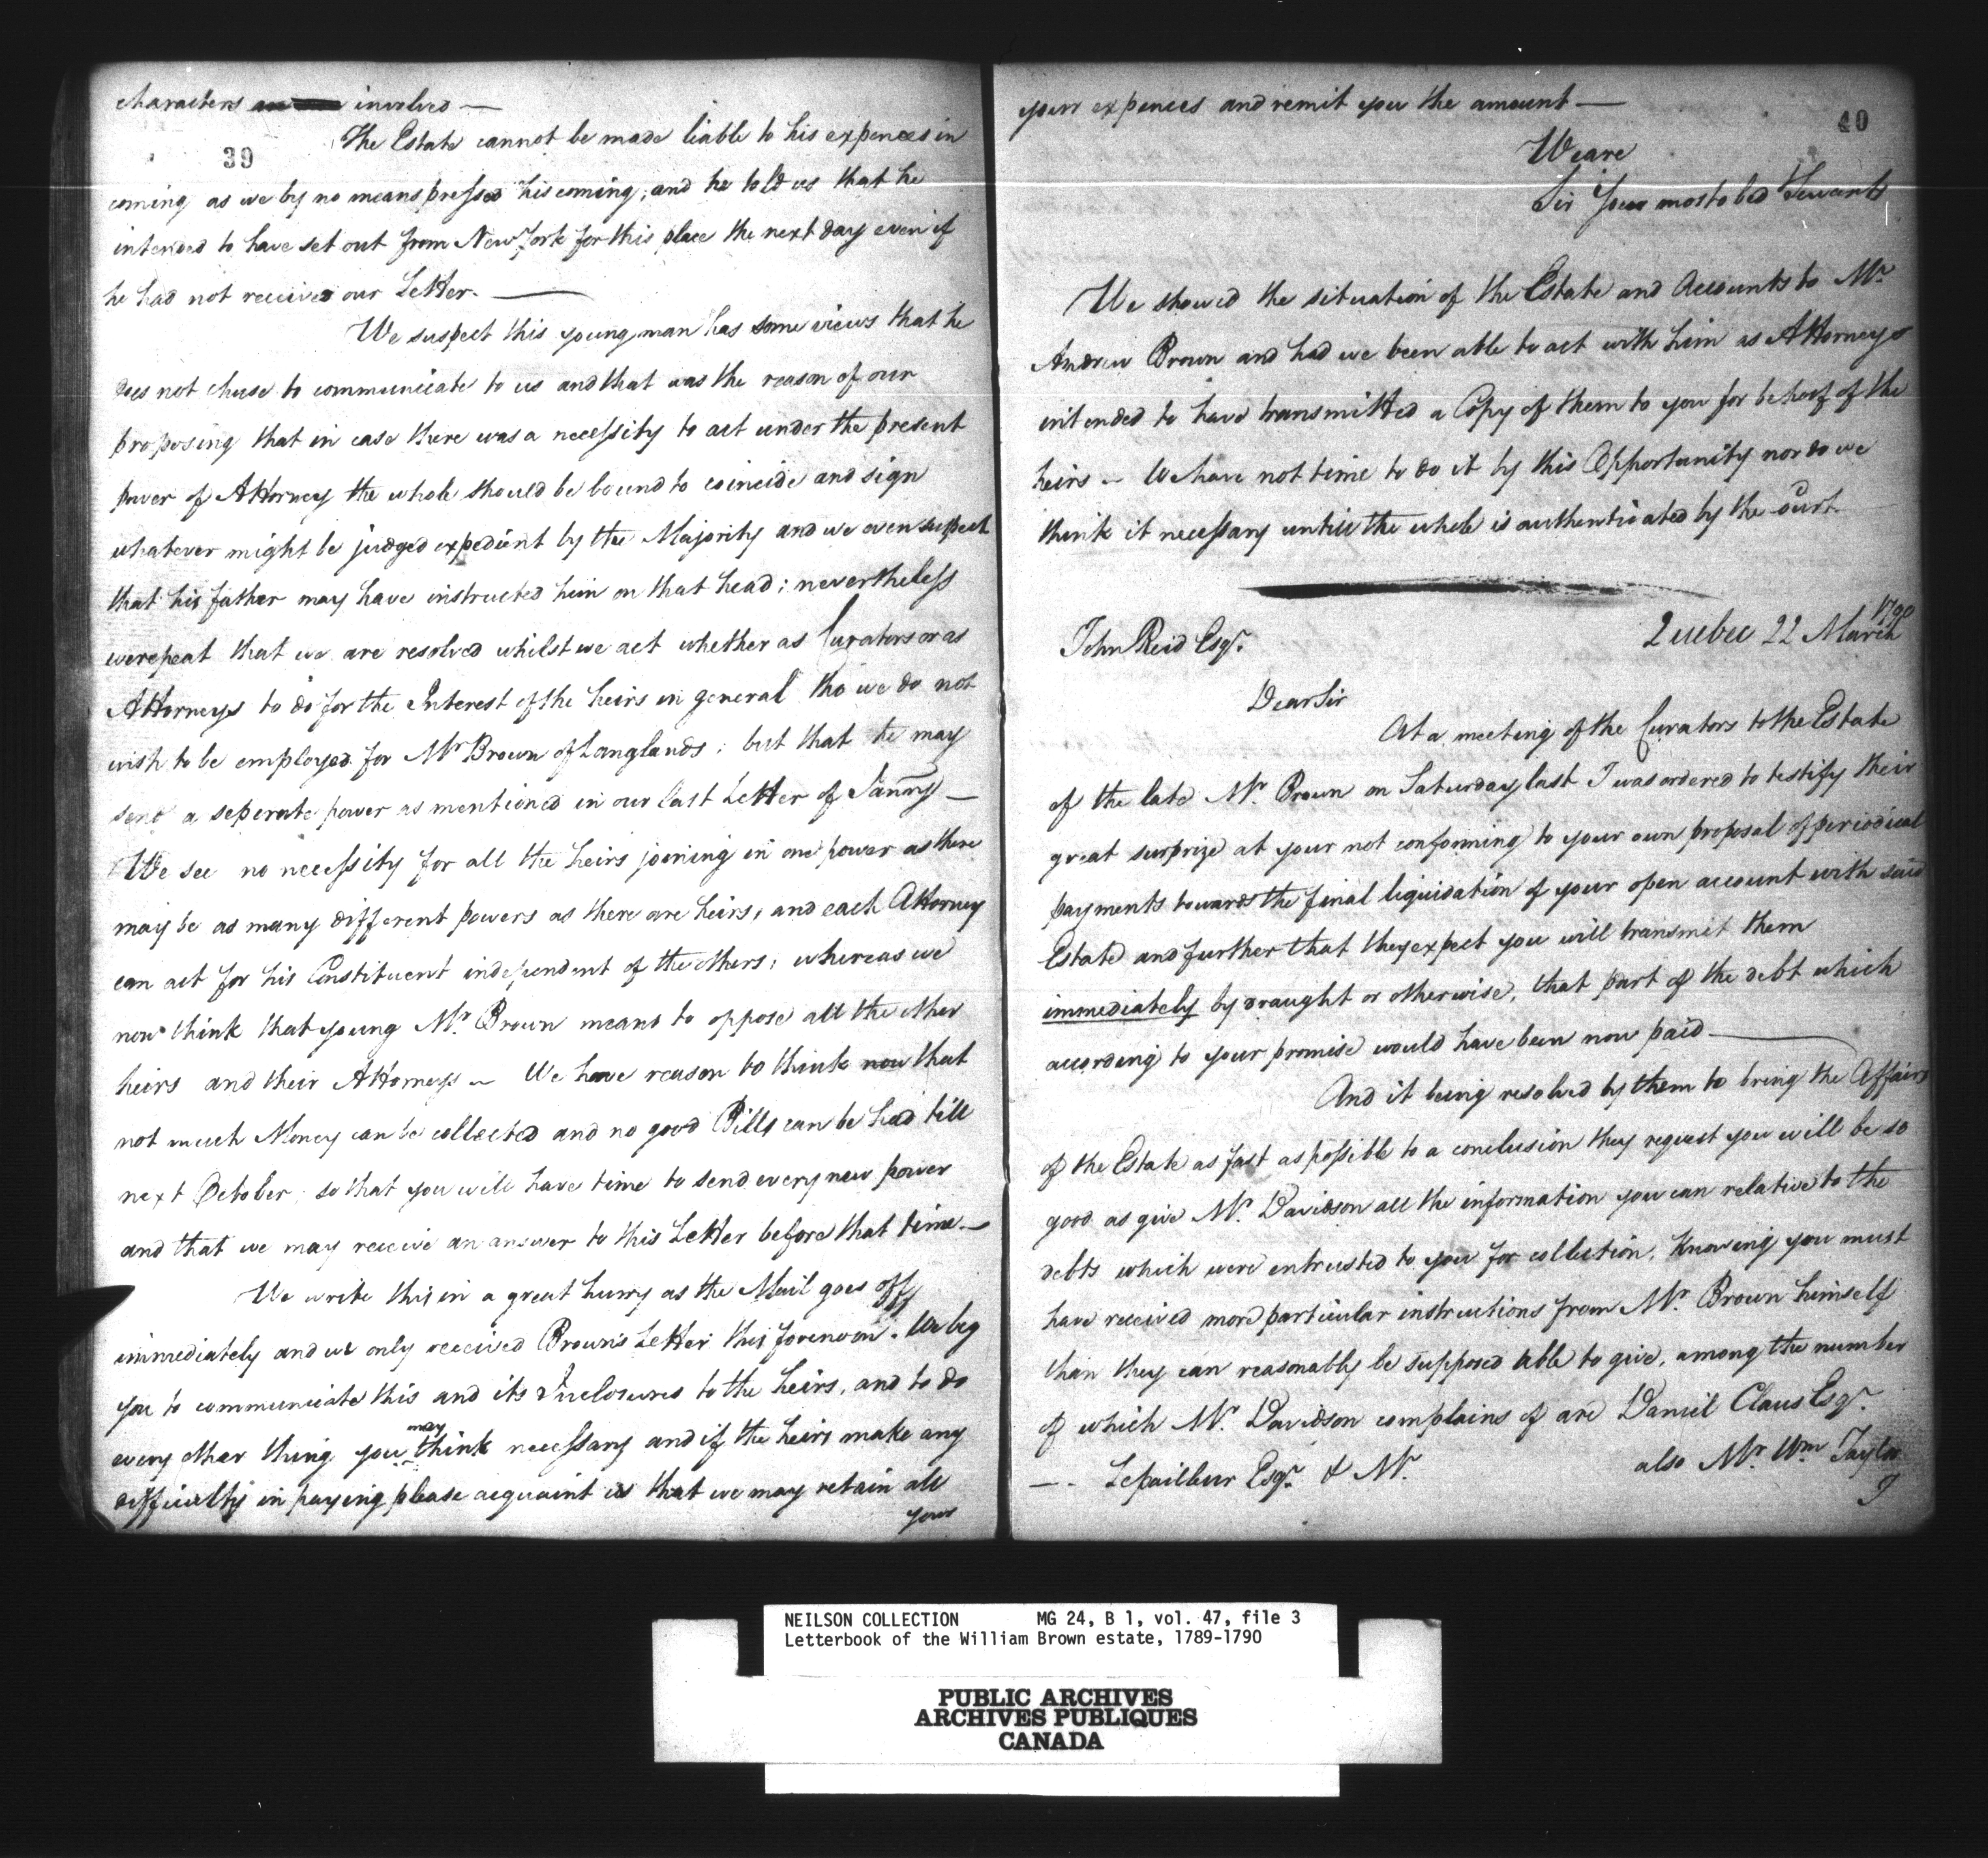 characters involved —
39
The Estate cannot be made liable to his expences in
coming as we by no means pressed his coming, and he told us that he
intended to have set out from New York for this place the next day even if
he had not received our Letter. —
We suspect this young man has some views that he
does not chuse to communicate to us and that was the reason of our
proposing that in case there was a necessity to act under the present
power of Attorney the whole should be bound to coincide and sign
whatever might be judged expedient by the Majority and we even suspect
that his father may have instructed him on that head; nevertheless
we repeat that we are resolved whilst we act whether as Curators or as
Attorneys to do for the Interest of the heirs in general tho we do not
wish to be employed for Mr Brown of Langlands; but that he may
send a seperate power as mentioned in our last Letter of Janury —
We see no necessity for all the heirs joining in one power as there
may be as many different powers as there are heirs, and each Attorney
can act for his Constituent independent of the others; whereas we
now think that young Mr. Brown means to oppose all the other
heirs and their Attorneys — We have reason to think now that
not much Money can be collected and no good Bills can be had till
next October, so that you will have time to send every new power
and that we may receive an answer to this Letter before that time —
We write this in a great hurry as the Mail goes off
immediately and we only received Brown's Letter this forenoon. We beg
you to communicate this and its Inclosures to the heirs, and to do
every other thing you may think necessary and if the heirs make any
difficulty in paying please acquaint us that we may retain all
your
your expences and remit you the amount —
40
We are
Sir Your most obed Servants
We showed the situation of the Estate and Accounts to Mr
Andrew Brown and had we been able to act with him as Attorneys
intended to have transmitted a Copy of them to you for behoof of the
heirs — We have not time to do it by this Opportunity nor do we
think it necessary untill the whole is authenticated by the Court.
Quebec 22 March 1790
John Reid Esqr.
Dear Sir
At a meeting of the Curators to the Estate
of the late Mr. Brown on Saturday last I was ordered to testify their
great surprize at your not conforming to your own proposal of periodical
payments towards the final liquidation of your open account with said
Estate and further that they expect you will transmit them
immediately by draught or otherwise, that part of the debt which
according to your promise would have been now paid —
And it being resolved by them to bring the Affairs
of the Estate as fast as possible to a conclusion they request you will be so
good as give Mr. Davidson all the information you can relative to the
debts which were entrusted to you for collection, Knowing you must
have received more particular instructions from Mr. Brown himself
than they can reasonably be supposed able to give, among the number
of which Mr. Davidson complains of are Daniel Claus Esqr.
—. Lepailleur Esqr. & Mr. also Mr. Wm Taylor
NEILSON COLLECTION MG 24, B 1, vol. 47, file 3
Letterbook of the William Brown estate, 1789-1790
PUBLIC ARCHIVES
ARCHIVES PUBLIQUES
CANADA